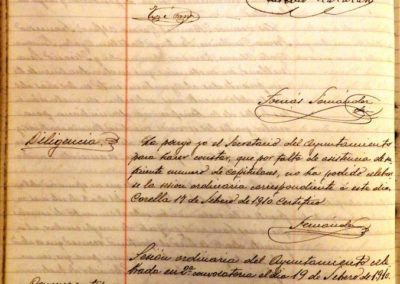 Tomás Fernández
Diligencia.
La pongo yo el Secretario del Ayuntamiento
para hacer constar, que por falta de asistencia de su-
ficiente número de capitulares, no ha podido celebrar-
se la sesión ordinaria correspondiente á este día.
Corella 17 de Febrero de 1910. Certifico
Fernández
Sesión ordinaria del Ayuntamiento cele-
brada en 2ª convocatoria el día 19 de Febrero de 1910.